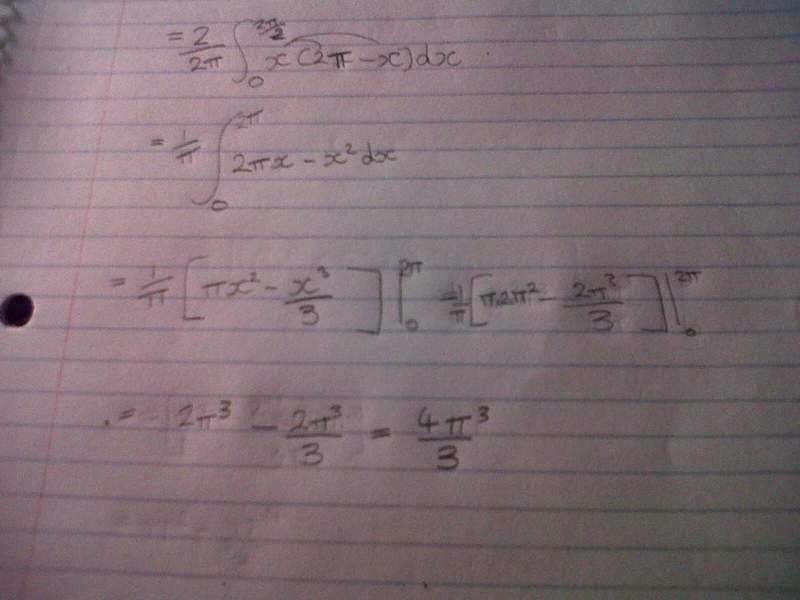 = 2/2π ∫₀ x(2π - x)dx
= 1/π ∫₀^2π 2πx - x² dx
= 1/π [πx² - x³/3]|₀^2π = 1/π [π.2π² - 2π³/3]|₀^2π
= 2π³ - 2π³/3 = 4π³/3